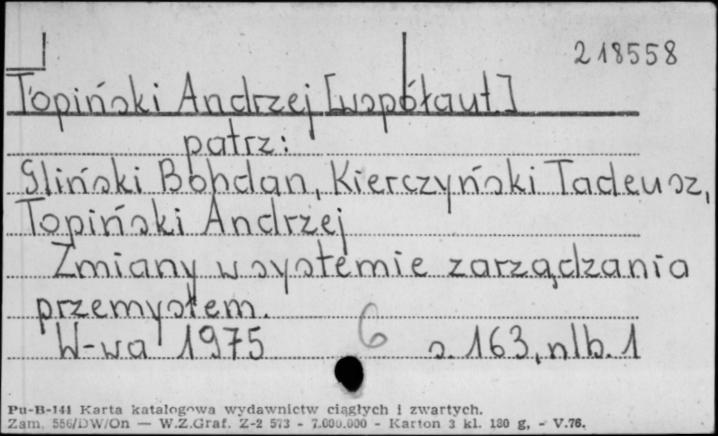 218558
Topiński Andrzej [współaut.]
patrz:
Gliński Bohdan, Kierczyński Tadeusz,
Topiński Andrzej
Zmiany w systemie zarządzania
przemysłem.
W-wa 1975 6 s. 163, nlb. 1
Pu-B-141 Karta katalogowa wydawnictw ciągłych i zwartych.
Zam. 556/DW/On — W.Z.Graf. Z-2 573 - 7.000.000 - Karton 3 kl. 180 g, - V.76.